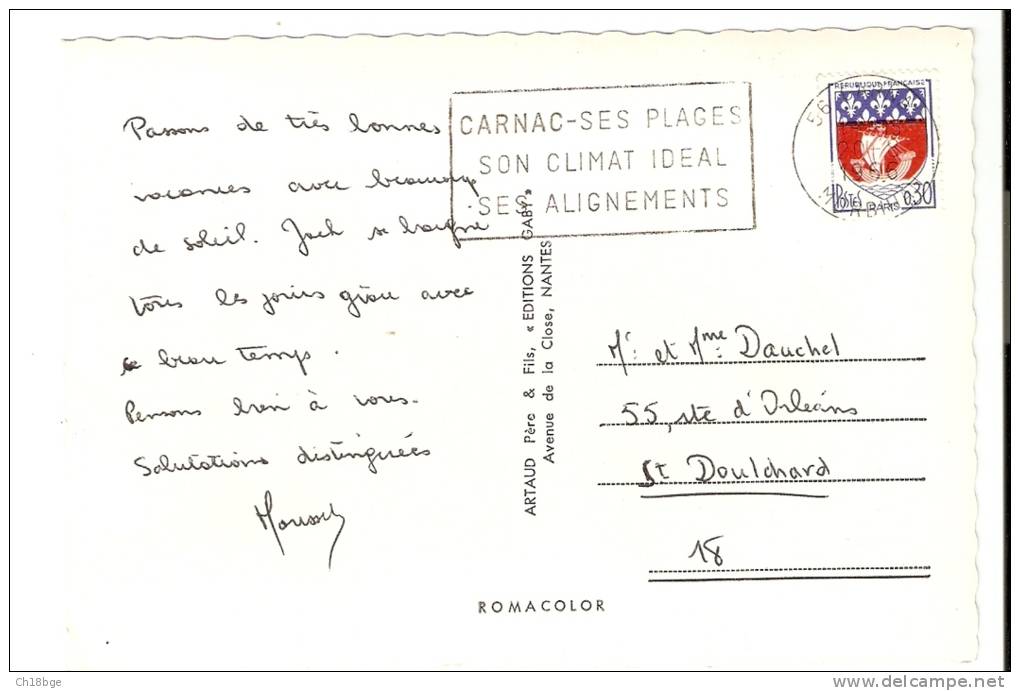 Passons de très bonnes
vacances avec beaucoup
de soleil. Jack se baigne
tous les jours
avec
beau temps.
Pensons bien à vous.
Salutations distinguées
CARNAC-SES PLAGES
SON CLIMAT IDEAL
·SES ALIGNEMENTS
REPUBLIQUE FRANÇAISE
POSTES PARIS 0,30
56
1966
ARTAUD Père & Fils, « EDITIONS GABY »
Avenue de la Close, NANTES
Mr et Mme Dauchel
55, rte d'Orleans
St Doulchard
18
ROMACOLOR
Ch18bge
delcampe.net